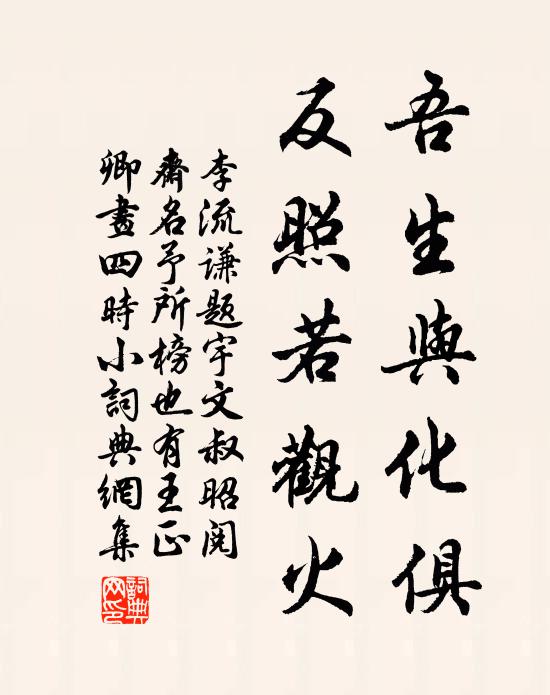 吾生與化俱
反照若觀火
李流謙題宇文叔昭閱
齋名予所榜也有王正
卿畫四時小詞典網集
詞典網印